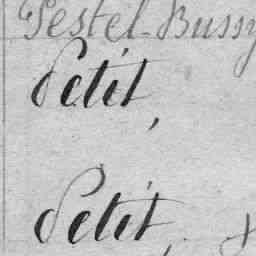 Pestel-Bussy
Petit,
Petit,